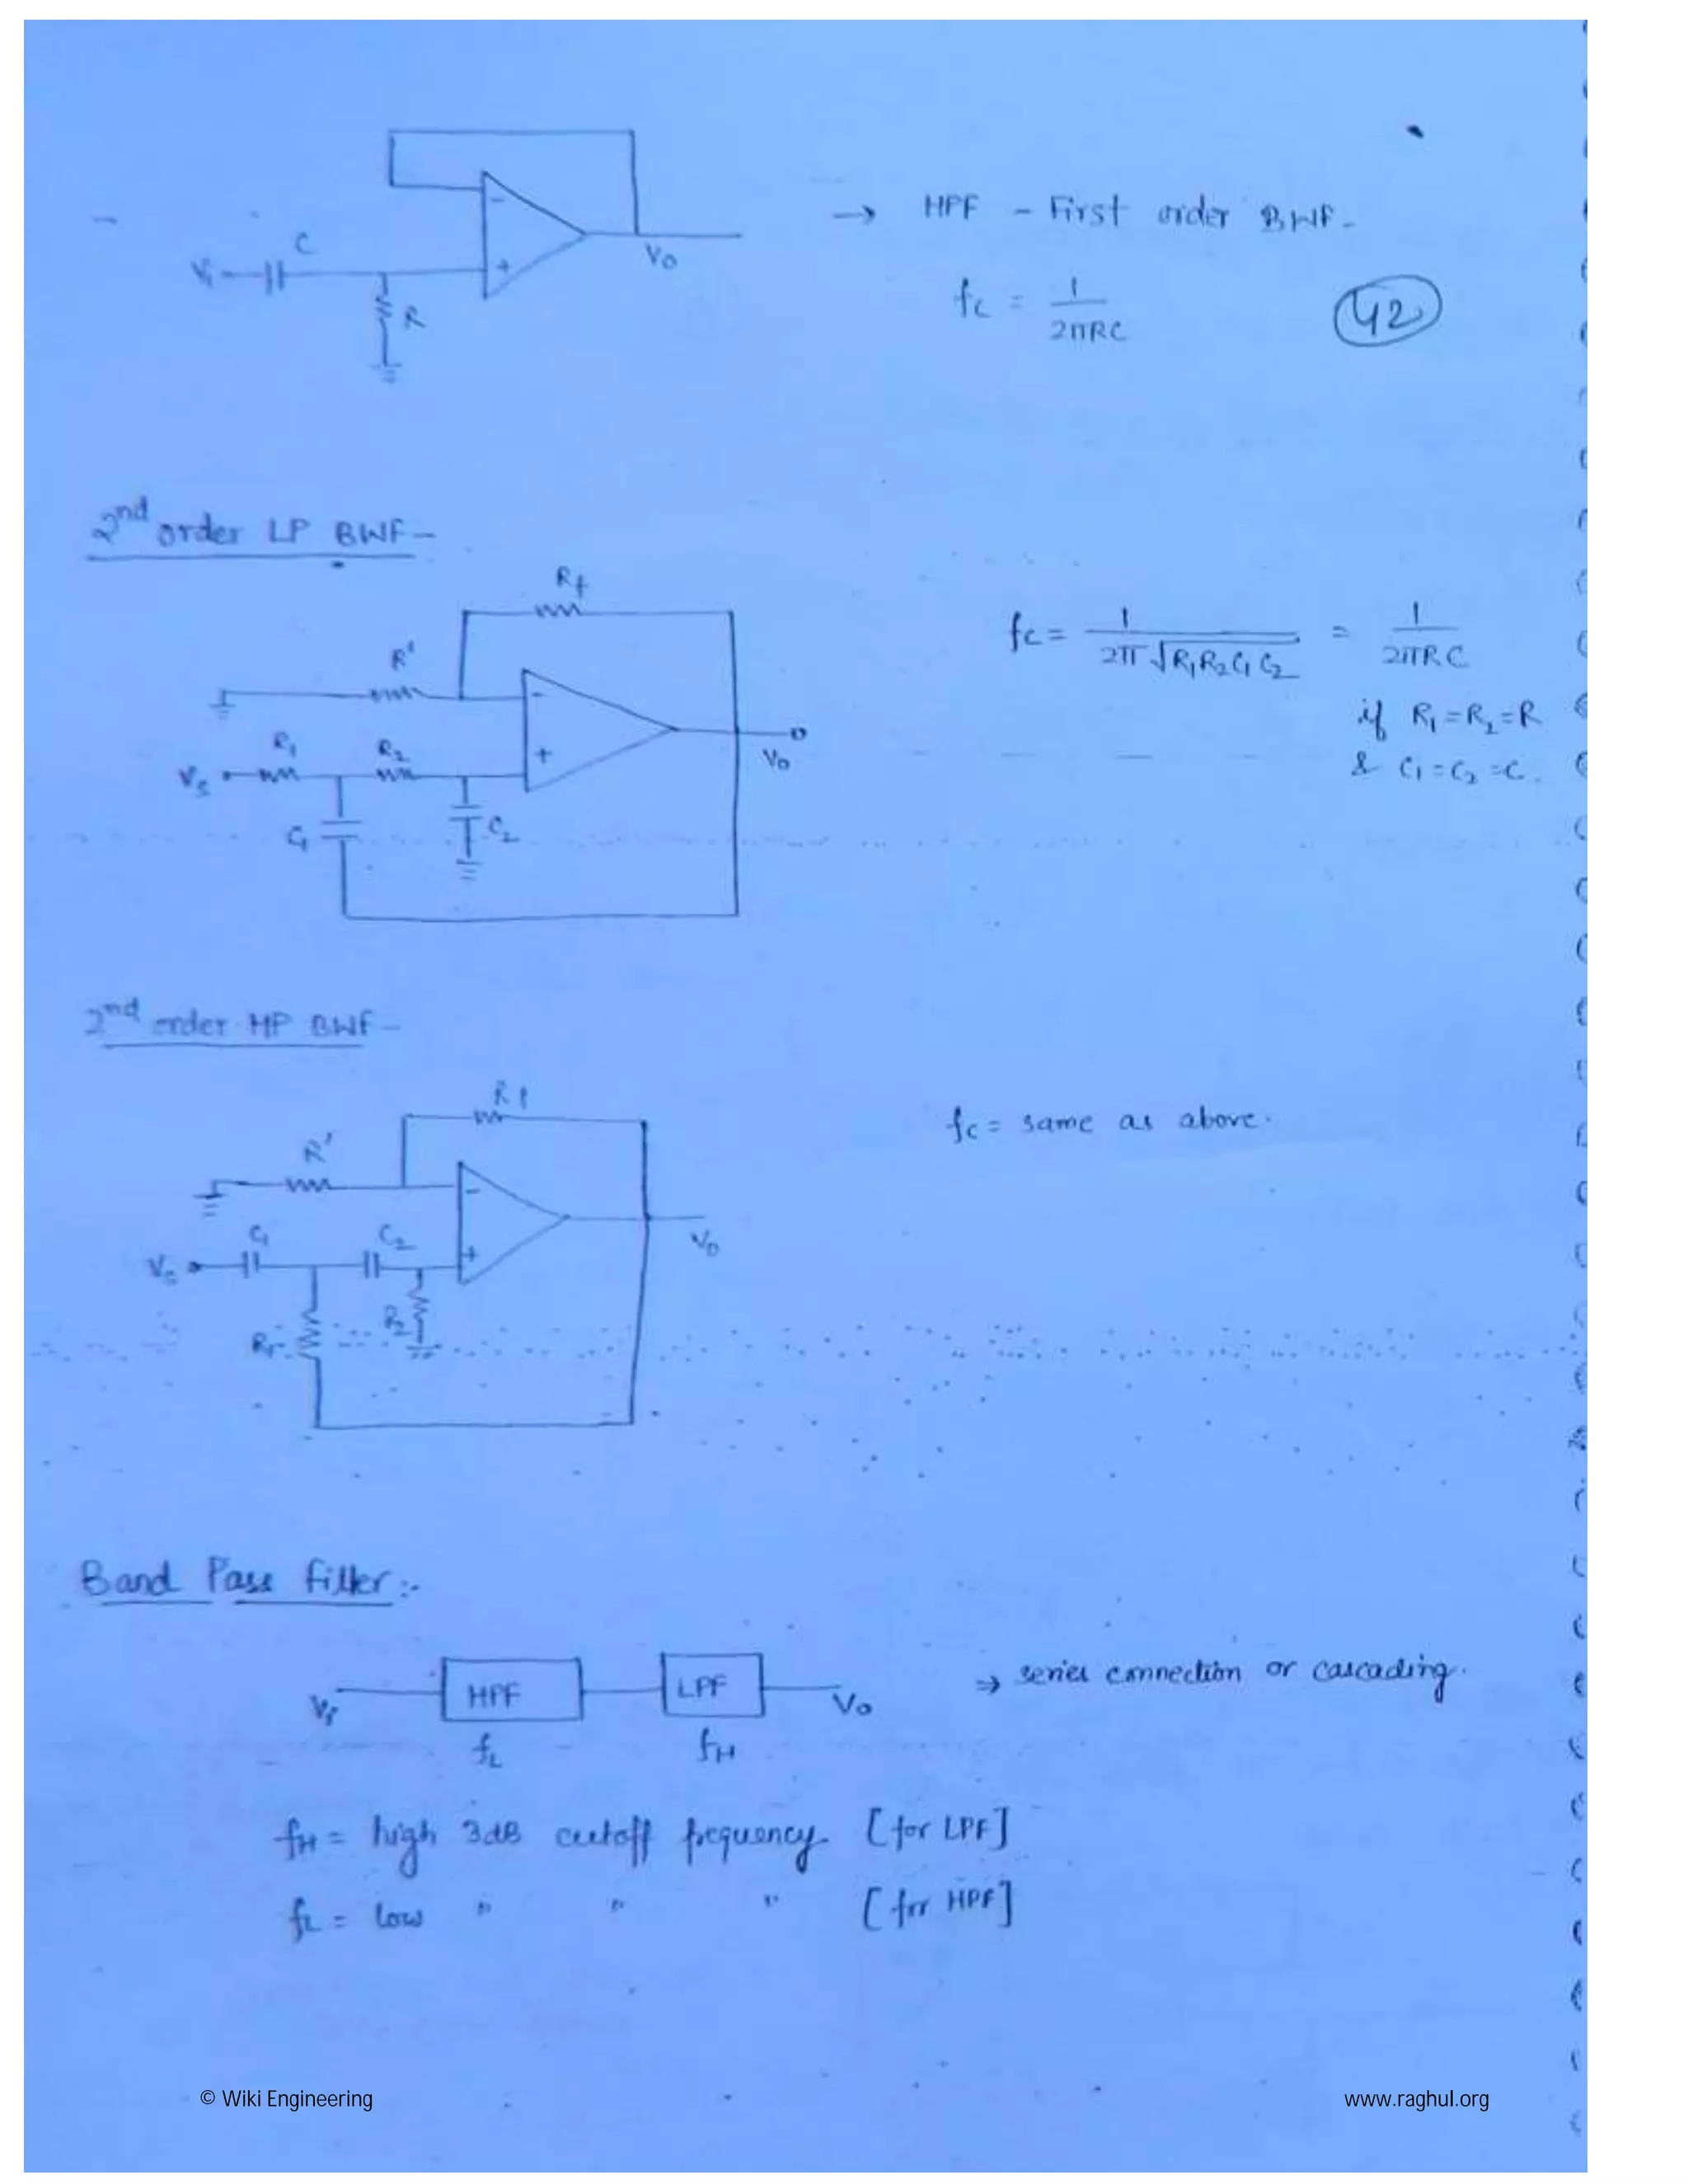 C
Vi
R
-
+
Vo
→ HPF - First order BWF-
fc = 1/2πRC
42
2nd order LP BWF-
Rf
R'
-
R1
R2
+
Vs
Vo
C1
C2
fc = 1/2π√R1R2C1C2 = 1/2πRC
if R1=R2=R
& C1=C2=C.
2nd order HP BWF-
Rf
R'
-
C1
C2
+
Vs
Vo
R1
R2
fc = same as above.
Band Pass filter:-
Vi HPF LPF Vo
fL fH
⇒ series connection or cascading.
fH = high 3dB cutoff frequency. [for LPF]
fL = low " " " [for HPF]
© Wiki Engineering
www.raghul.org